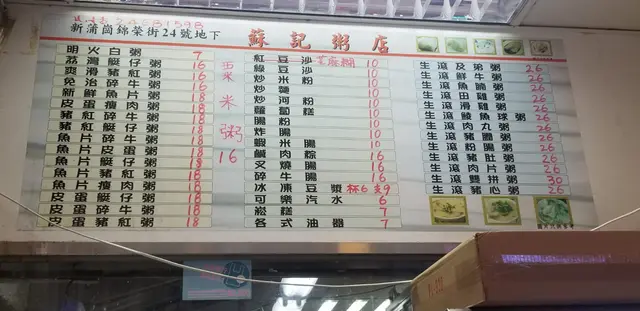 新蒲崗錦榮街24號地下
蘇記粥店
明火白粥 7
荔灣艇仔粥 16
爽滑豬紅粥 16
免治碎牛粥 16
新鮮魚片粥 18
皮蛋瘦肉粥 18
豬紅碎牛粥 18
豬紅艇仔粥 18
魚片碎牛粥 18
魚片皮蛋粥 18
魚片艇仔粥 18
魚片豬紅粥 18
魚片瘦肉粥 18
皮蛋艇仔粥 18
皮蛋碎牛粥 18
皮蛋豬紅粥 18
粟米粥 16
紅豆沙 芝麻糊 10
綠豆沙 10
炒米粉 10
炒麵 10
炒河粉 10
蘿蔔糕 10
腸粉 10
炸腸 10
蝦米腸 10
鹹肉粽 16
叉燒腸 16
碎牛腸 16
冰凍豆漿 杯6 支9
可樂汽水 6
崧糕 7
各式油器 7
生滾及弟粥 26
生滾鮮牛粥 26
生滾魚腩粥 26
生滾田雞粥 26
生滾滑雞粥 26
生滾鯪魚球粥 26
生滾肉丸粥 26
生滾豬膶粥 26
生滾粉腸粥 26
生滾豬肚粥 26
生滾肉片粥 26
生滾雙拼粥 30
生滾豬心粥 26